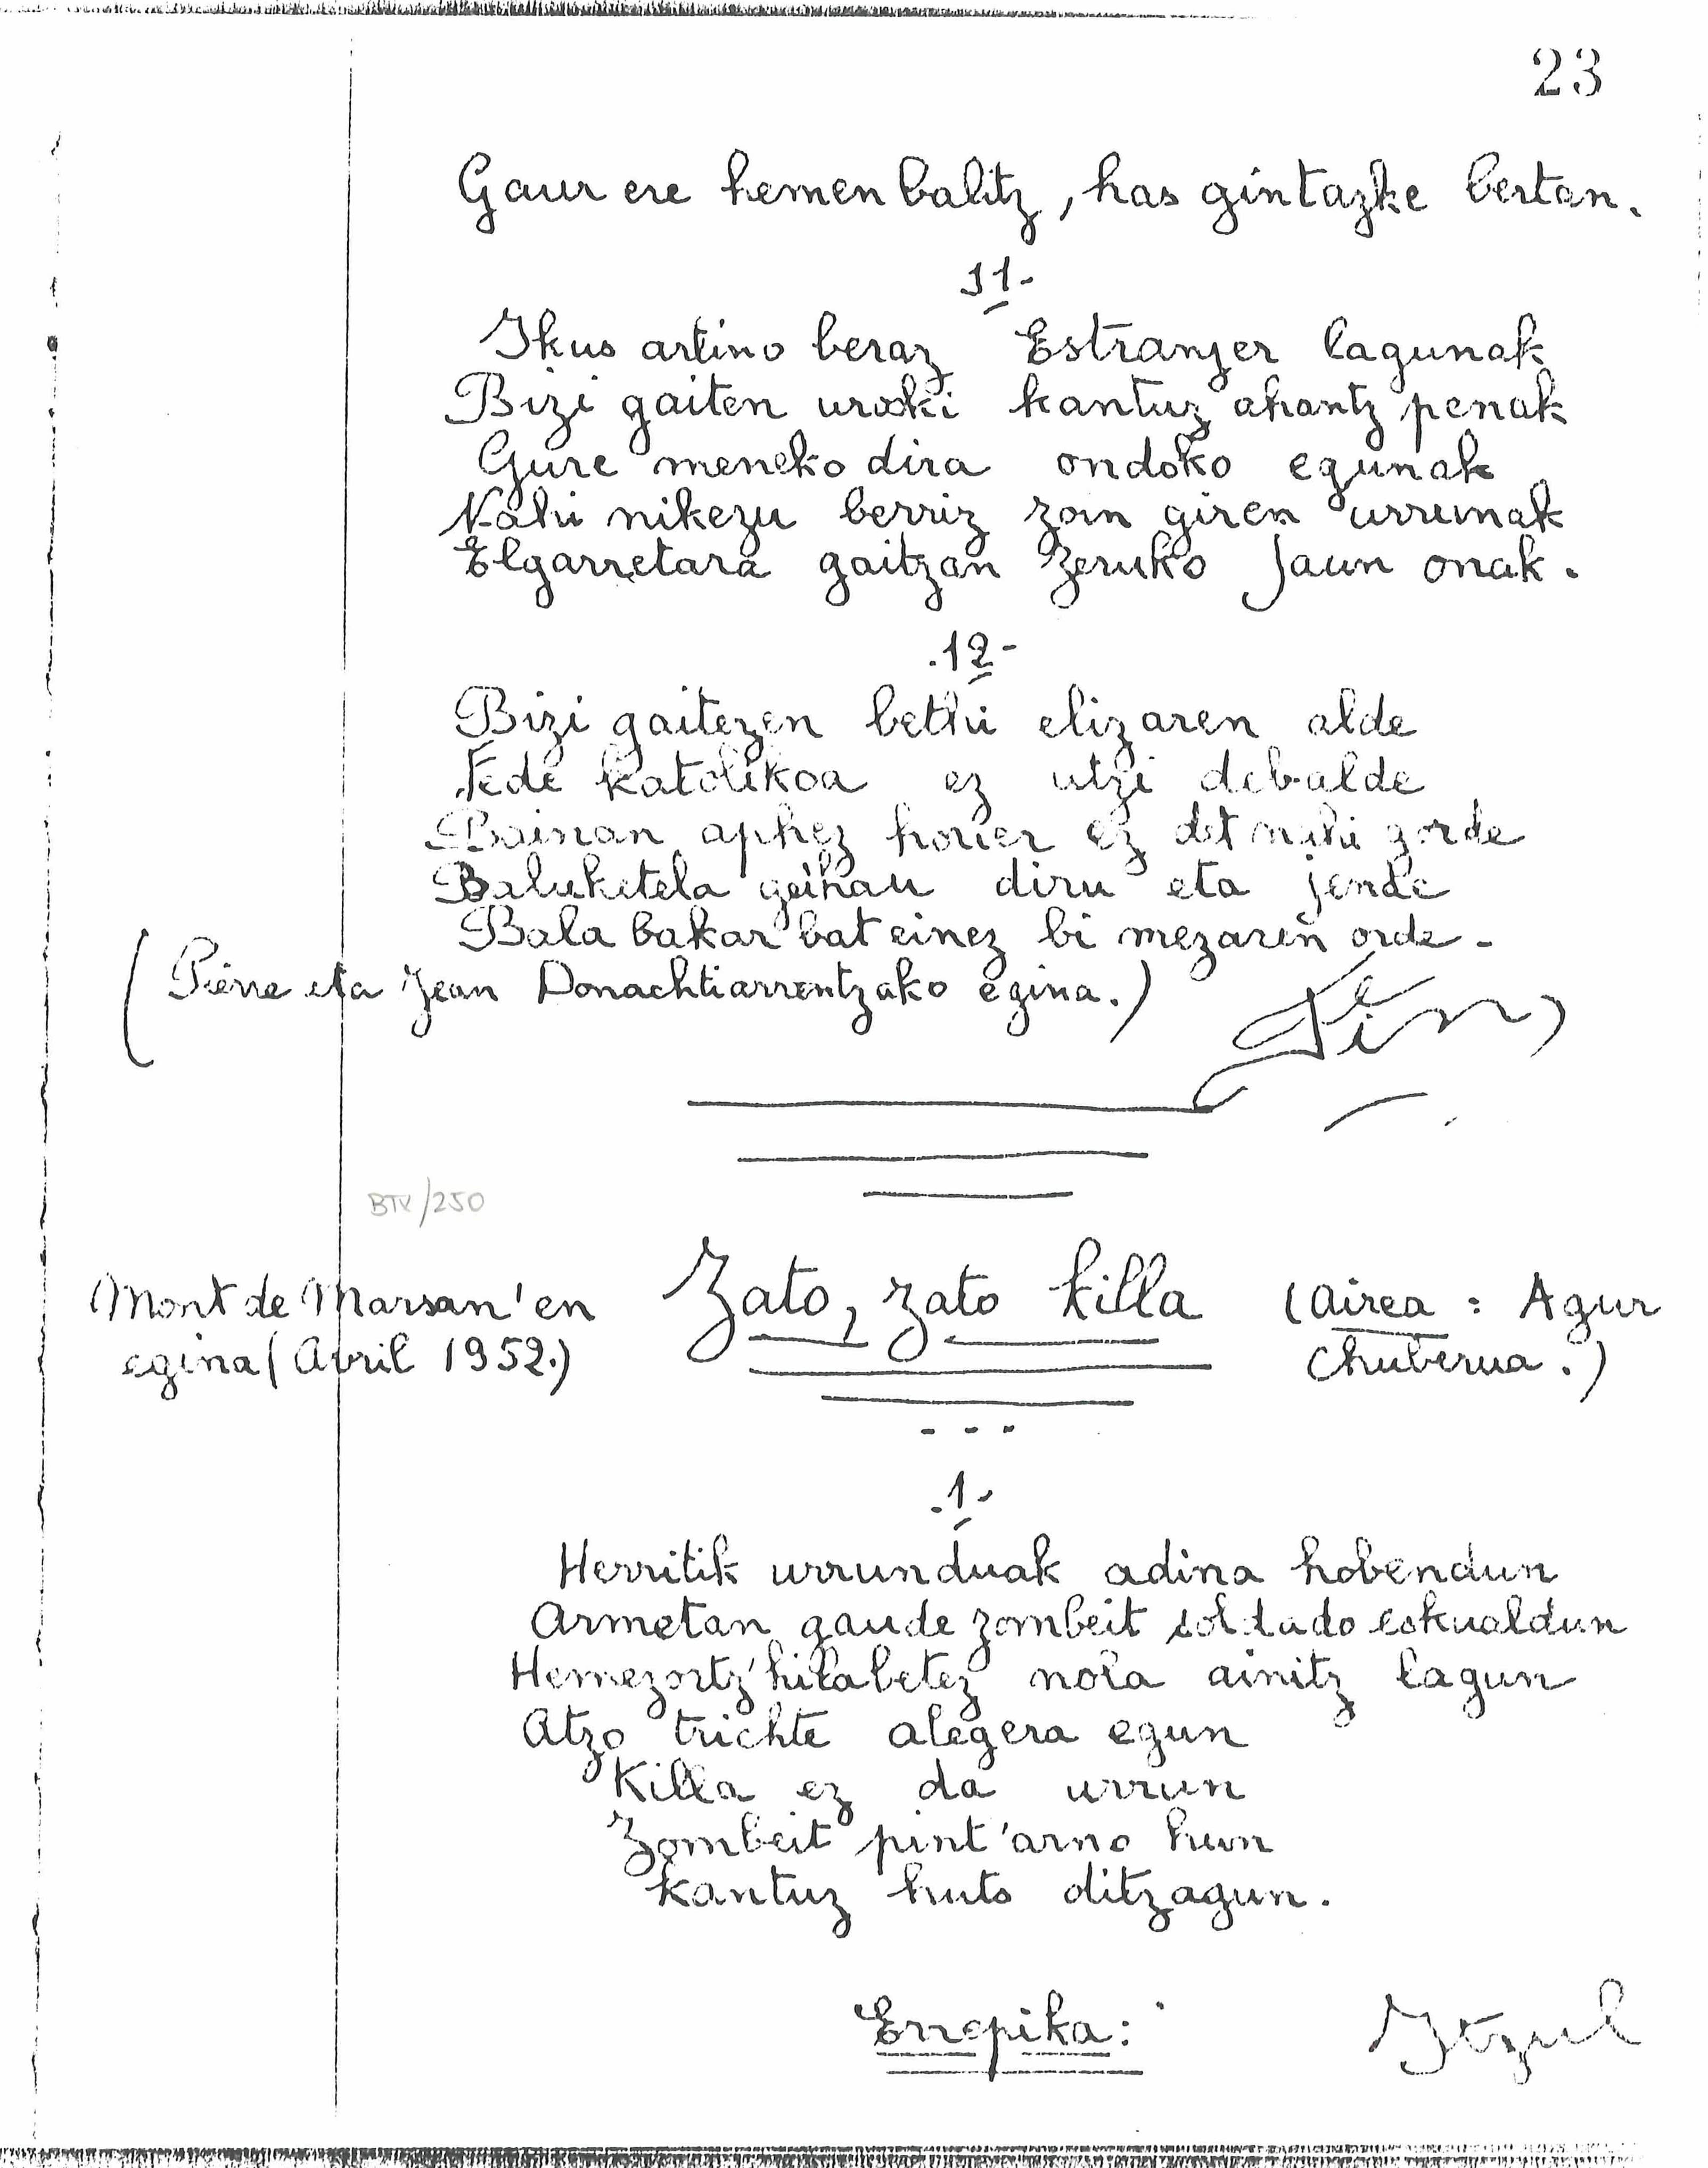 23
Gaur ere hemen balitz, has gintazke bertan.
11-
Ikus artino beraz Estranjer lagunak
Bizi gaiten uroski kantuz ahantz penak
Gure meneko dira ondoko egunak
Nahi nikezu berriz zoin giren urrunak
Elgarretara gaitzan Zeruko Jaun onak.
.12-
Bizi gaitezen bethi elizaren alde
Fede katolikoa ez utzi debalde
Bainan aphez horier ez det nahi gorde
Baluketela geihau diru eta jende
Bala bakar bat einez bi mezaren orde-
(Pierre eta Jean Donachtiarrentzako egina.)
Fin
BTX/250
Mont de Marsan'en Zato, zato killa (airea: Agur
egina (Avril 1952.) Chuberua.)
- - -
.1-
Herritik urrunduak adina hobendun
Armetan gaude zombeit soldado eskualdun
Hemezortz'hilabetez nola ainitz lagun
Atzo trichte alegera egun
Killa ez da urrun
Zombeit pint'arno hun
kantuz huts ditzagun.
Errepika: Itzul